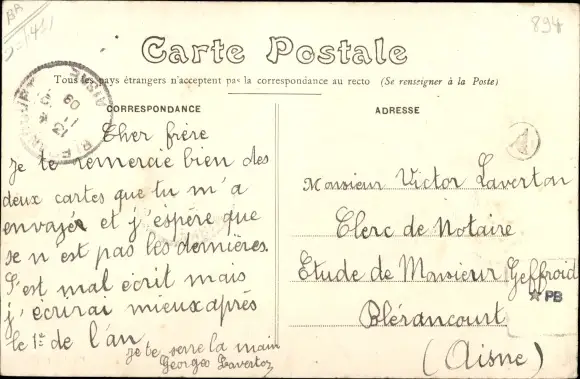 BA
894
Carte Postale
Tous les pays étrangers n'acceptent pas la correspondance au recto (Se renseigner à la Poste)
CORRESPONDANCE
Cher frère
je te remercie bien des
deux cartes que tu m'a
envoyér et j'espère que
se n est pas les dernières.
S'est mal écrit mais
j'écrirai mieux après
le 1er de l'an
je te serre la main
Georges Laverton
ADRESSE
Monsieur Victor Laverton
Clerc de Notaire
Etude de Monsieur Geffroid
Blérancourt
(Aisne)
BLERANCOURT
AISNE
09
A
★PB